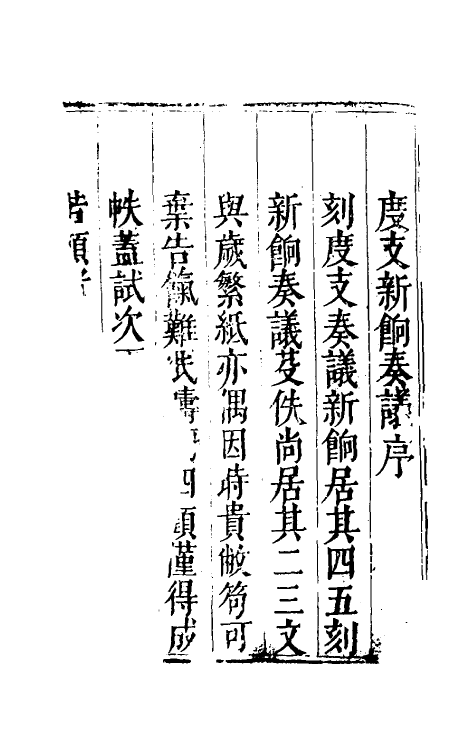 度支新餉奏議序
刻度支奏議新餉居其四五刻
新餉奏議芟佚尚居其二三文
與歲繁紙亦偶因時貴敝笱可
棄告餼難 四頭僅得成
帙蓋試次